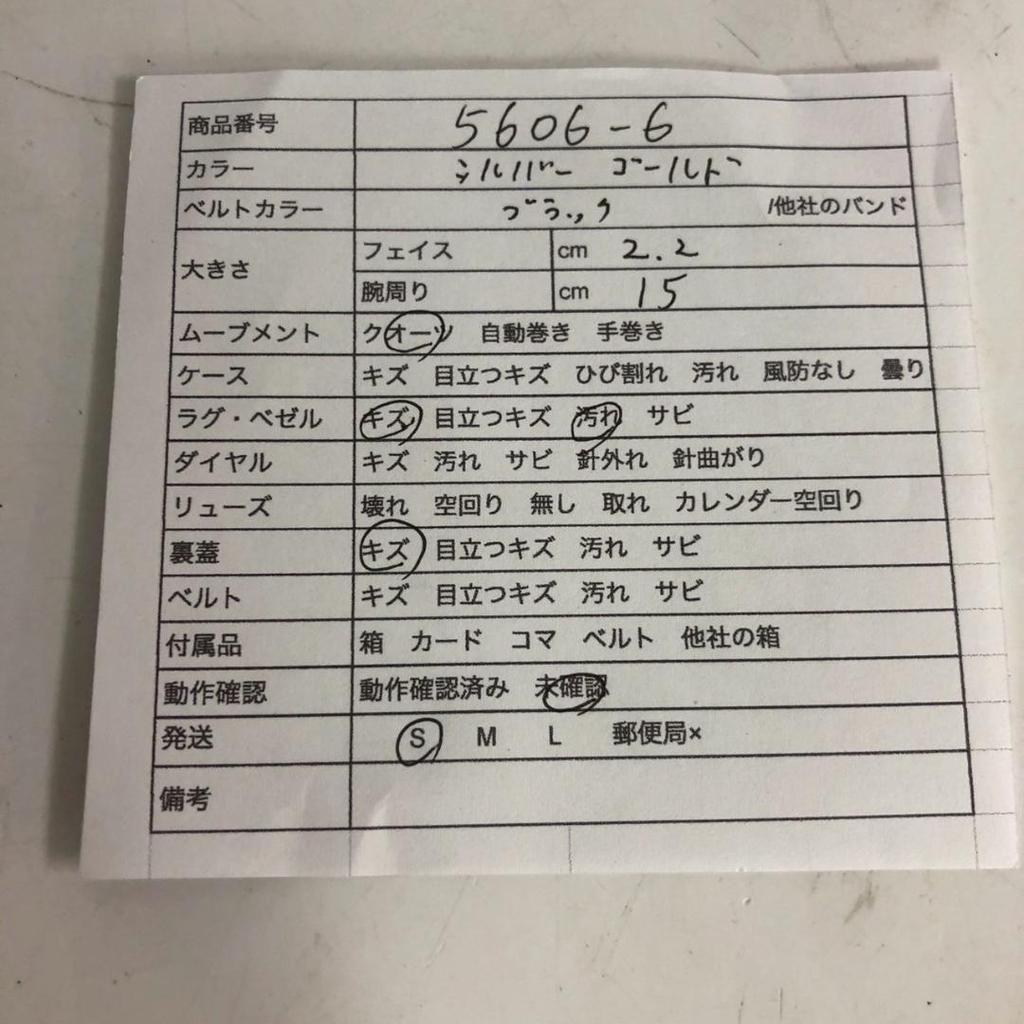 商品番号 5606-6
カラー シルバー ゴールド
ベルトカラー ブラック /他社のバンド
大きさ フェイス cm 2.2
腕周り cm 15
ムーブメント クオーツ 自動巻き 手巻き
ケース キズ 目立つキズ ひび割れ 汚れ 風防なし 曇り
ラグ・ベゼル キズ 目立つキズ 汚れ サビ
ダイヤル キズ 汚れ サビ 針外れ 針曲がり
リューズ 壊れ 空回り 無し 取れ カレンダー空回り
裏蓋 キズ 目立つキズ 汚れ サビ
ベルト キズ 目立つキズ 汚れ サビ
付属品 箱 カード コマ ベルト 他社の箱
動作確認 動作確認済み 未確認
発送 S M L 郵便局×
備考